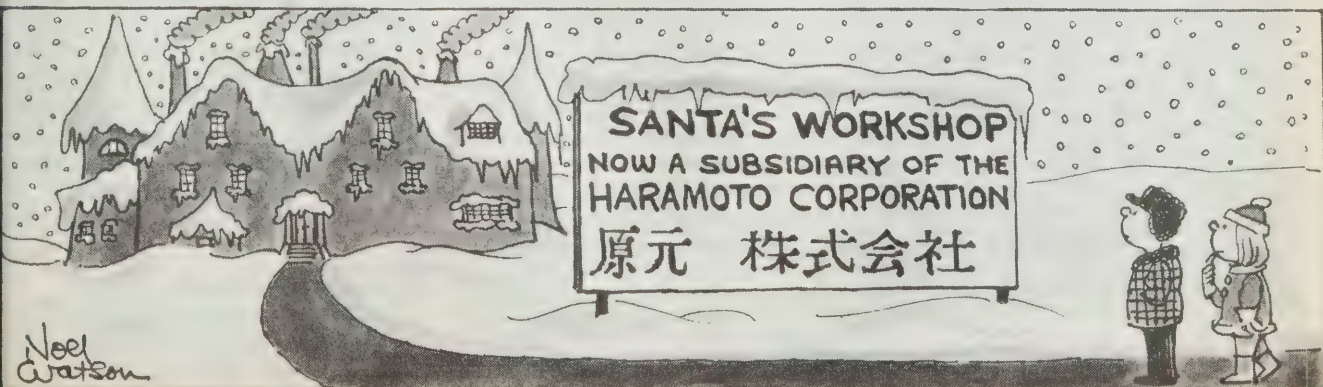 SANTA'S WORKSHOP
NOW A SUBSIDIARY OF THE
HARAMOTO CORPORATION
原元 株式会社
Noel
Watson